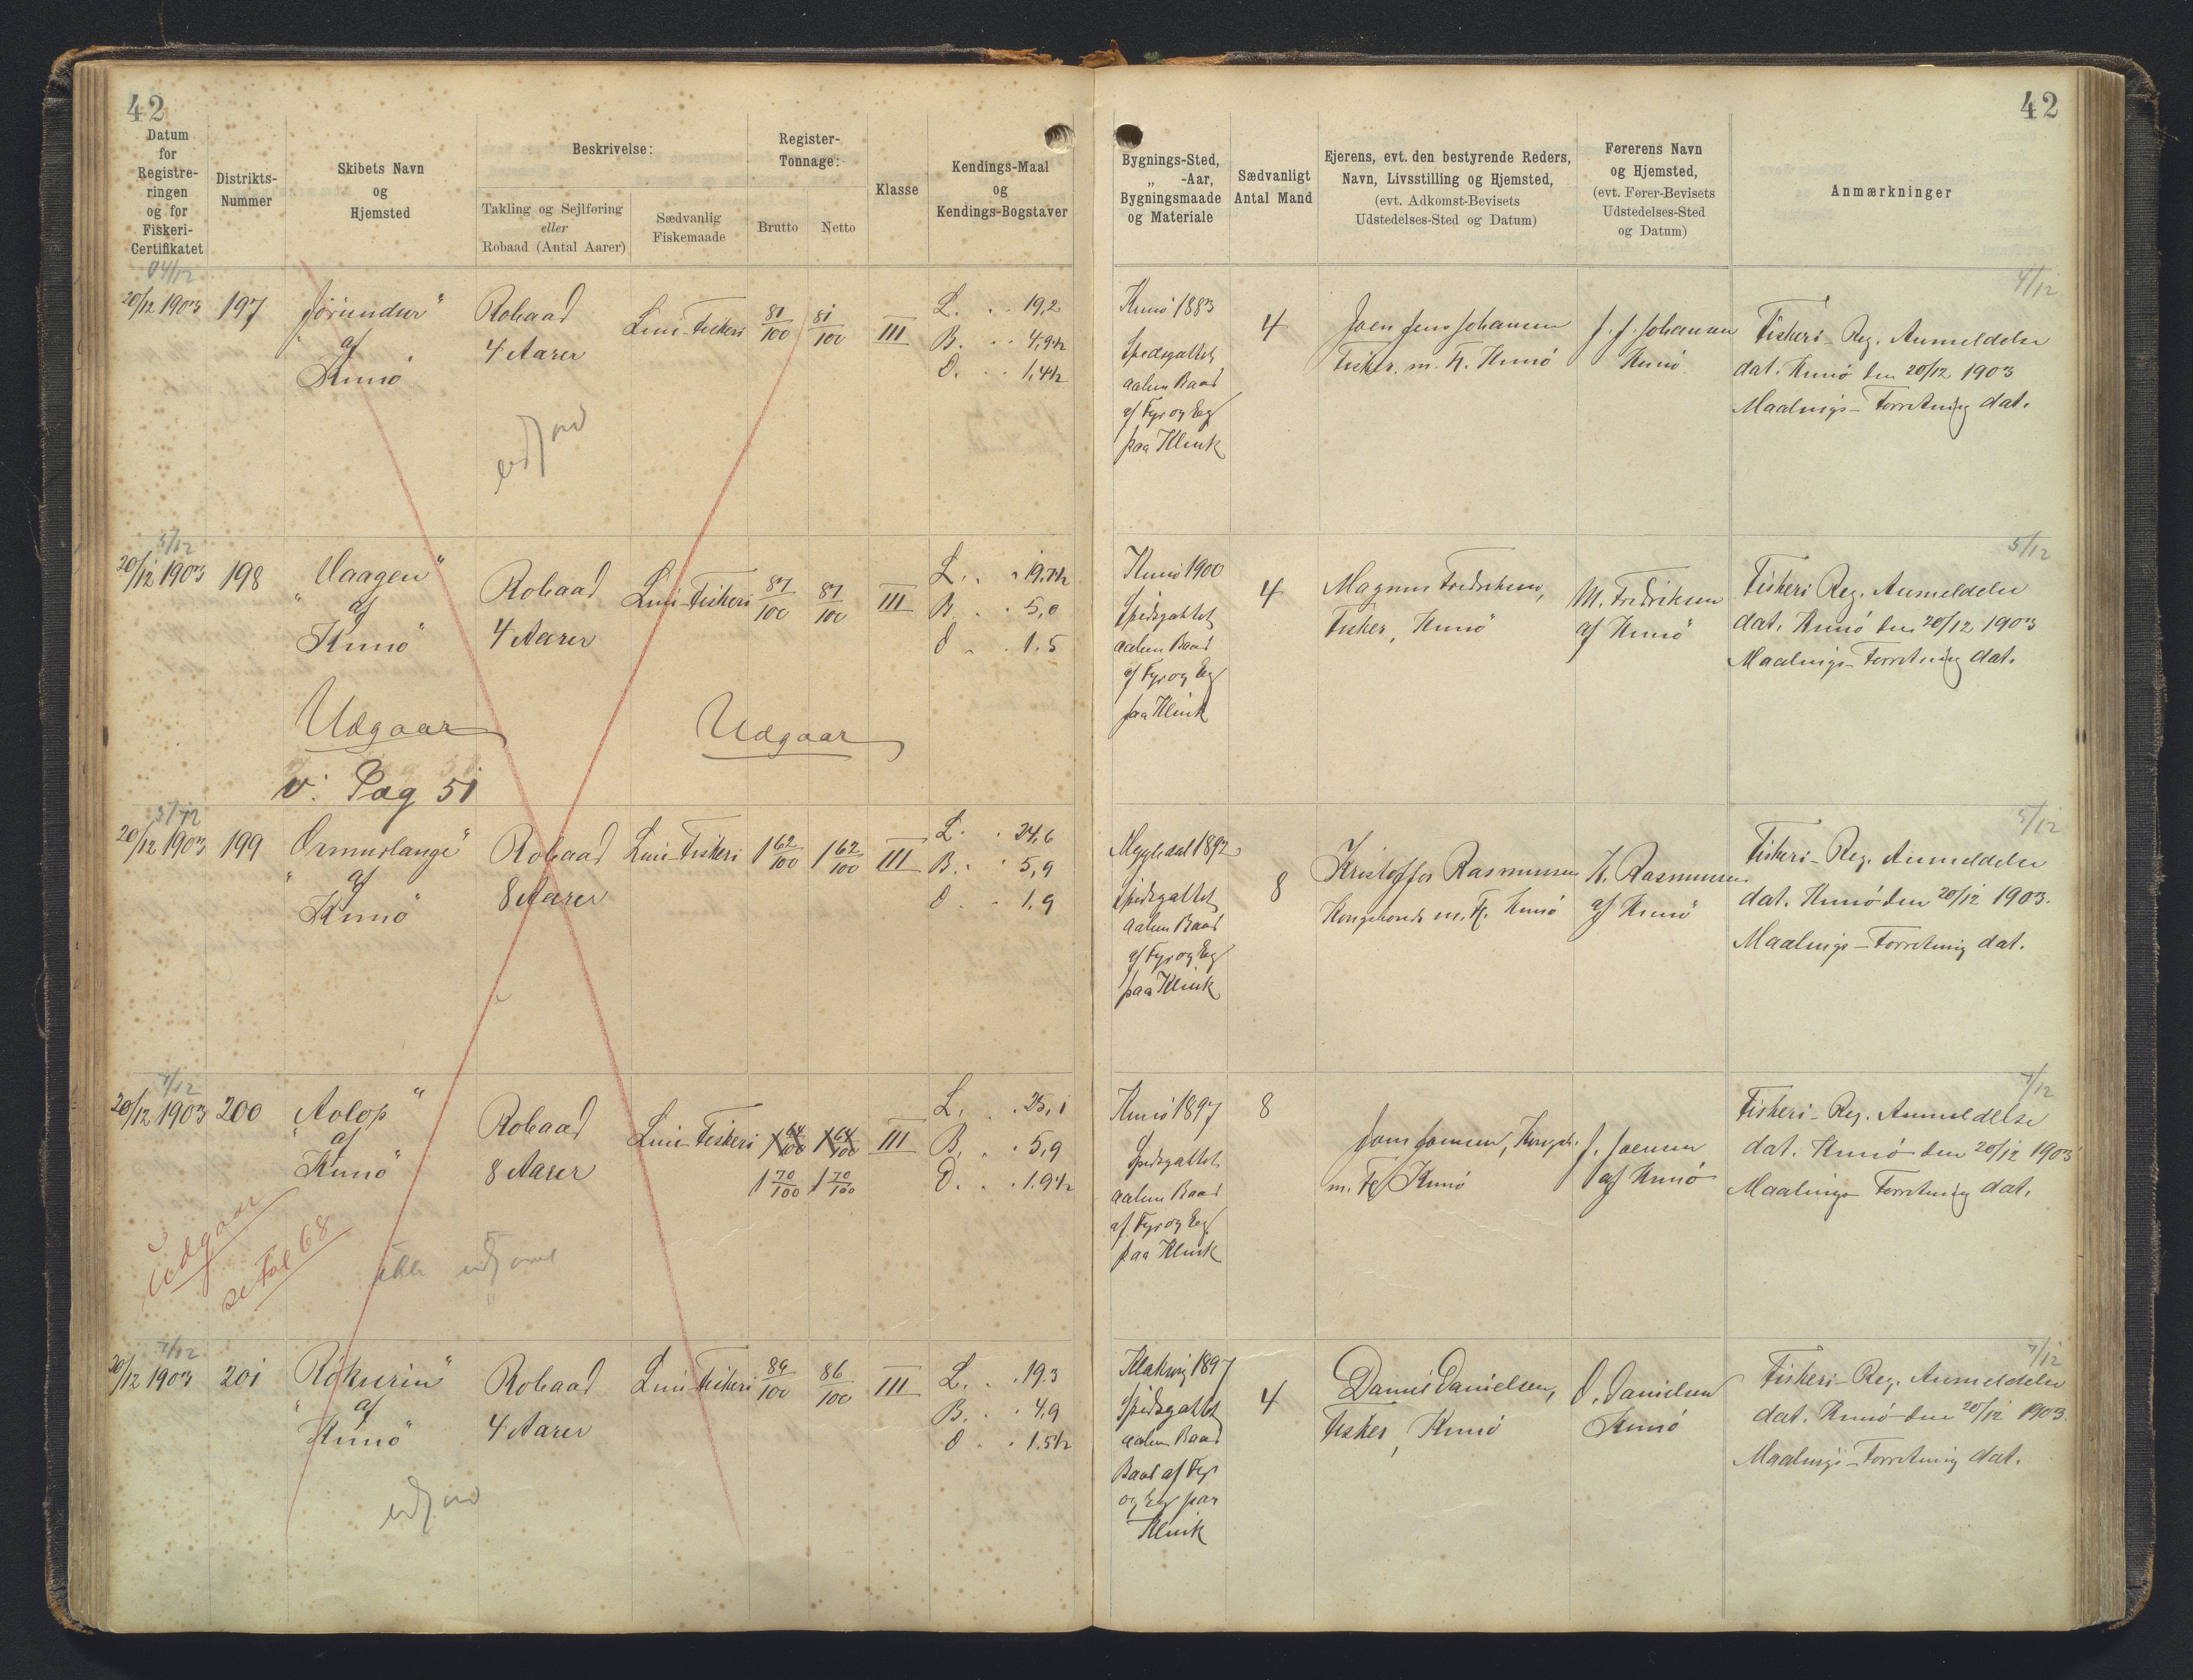 42
42
Datum
for
Registre-
ringen
og for
Fiskeri-
Certifikatet
Distrikts-
Nummer
Skibets Navn
og
Hjemsted
Beskrivelse:
Takling og Sejlføring
eller
Robaad (Antal Aarer)
Sædvanlig
Fiskemaade
Register-
Tonnage:
Brutto
Netto
Klasse
Kendings-Maal
og
Kendings-Bogstaver
Bygnings-Sted,
„ -Aar,
Bygningsmaade
og Materiale
Sædvanligt
Antal Mand
Ejerens, evt. den bestyrende Reders,
Navn, Livsstilling og Hjemsted,
(evt. Adkomst-Bevisets
Udstedelses-Sted og Datum)
Førerens Navn
og Hjemsted,
(evt. Fører-Bevisets
Udstedelses-Sted
og Datum)
Anmærkninger
20/12 1903
197
Jørundur"
af
Kunö
Robaad
4 Aarer
Line-Fiskeri
81/100
81/100
III
L. . . 19,2
B. . . 4,9½
D. . . 1,4½
Kunö 1883
Spidsgattet
aaben Baad
af Fyr og Eeg
paa Klink
4
Joen Jens Johansen
Fisker m. F. Kunö
J. J. Johansen
Kunö
4/12
Fiskeri-Reg. Anmeldelse
dat. Kunö den 20/12 1903
Maalings-Forretning dat.
5/12
20/12 1903
198
"Vaagen"
af
Kunö
Robaad
4 Aarer
Line-Fiskeri
87/100
87/100
III
L. . . 19,7½
B. . . 5,0
D . . 1.5
Udgaar
Udgaar
v. Pag 51
Kunö 1900
Spidsgattet
aaben Baad
af Fyr og Eeg
paa Klink
4
Magnus Fredriksen,
Fisker, Kunö
M. Fredriksen
af Kunö
5/12
Fiskeri Reg. Anmeldelse
dat. Kunö den 20/12 1903
Maalings-Forretning dat.
5/12
20/12 1903
199
"Ormurlange"
af
Kunö
Robaad
8 Aarer
Line-Fiskeri
1 62/100
1 62/100
III
L. . 24,6
B. . . 5,9
D . . 1,9
1892
Spidsgattet
aaben Baad
af Fyr og Eeg
paa Klink
8
Kristoffer Rasmussen
Kongsbonde m. F. Kunö
K. Rasmussen
af Kunö
5/12
Fiskeri-Reg. Anmeldelse
dat. Kunö den 20/12 1903.
Maalings-Forretning dat.
7/12
20/12 1903
200
"Aolop"
af
Kunö
Robaad
8 Aarer
Line-Fiskeri
1 64/100
1 64/100
1 70/100
1 70/100
III
L. . . 25,1
B. . . 5,9
D. . . 1.9½
Udgaar
se Fol 68
Kunö 1897
Spidsgattet
aaben Baad
af Fyr og Eeg
paa Klink
8
m. F. Kunö
J. Joensen
af Kunö
7/12
Fiskeri-Reg. Anmeldelse
dat. Kunö den 20/12 1903
Maalings Forretning dat.
7/12
20/12 1903
201
"Rokurin"
af
Kunö
Robaad
4 Aarer
Line-Fiskeri
86/100
86/100
III
L. . . 19.3
B. . . 4,9
D . . 1.5½
Klaksvig 1897
Spidsgattet
aaben Baad
Baad af Fyr
og Eeg paa
Klink
4
Danial Danielsen,
Fisker, Kunö
D. Danielsen
Kunö
7/12
Fiskeri-Reg. Anmeldelse
dat. Kunö den 20/12 1903.
Maalings-Forretning dat.